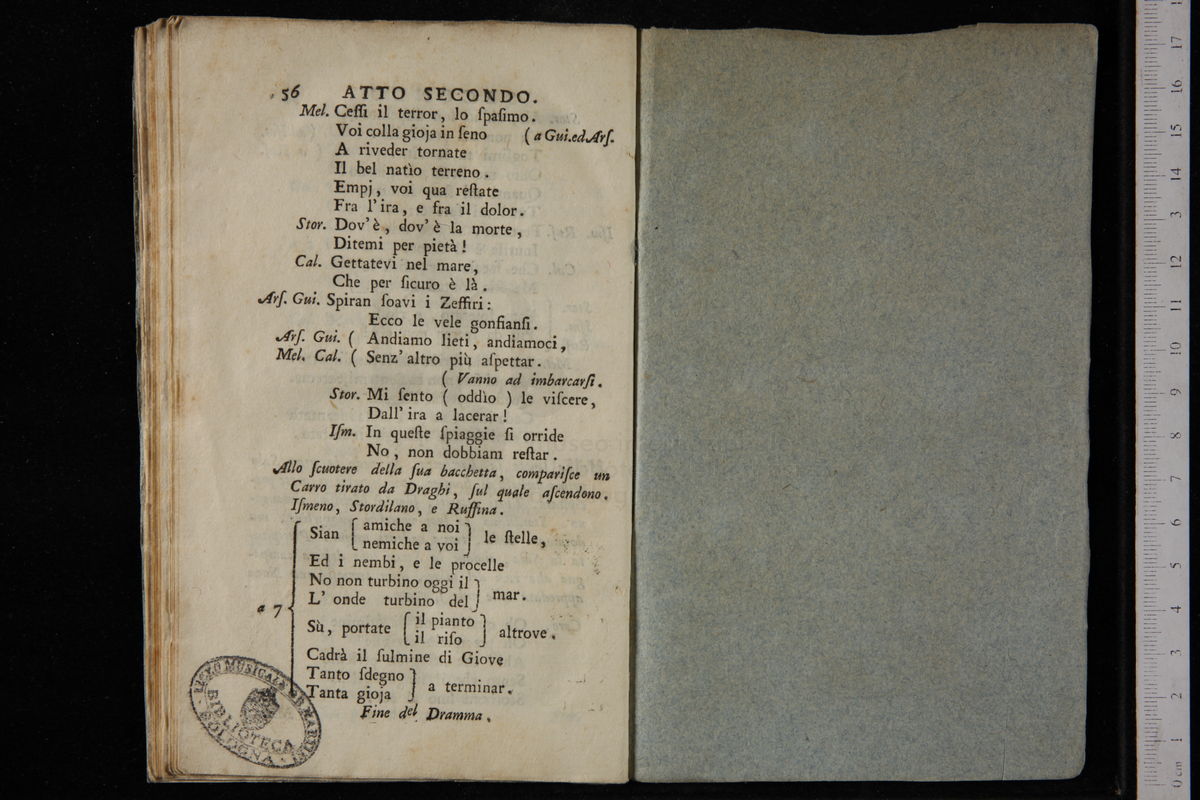 56 ATTO SECONDO.
Mel. Ceſſi il terror, lo ſpaſimo.
Voi colla gioja in ſeno ( a Gui. ed Arſ.
A riveder tornate
Il bel natìo terreno.
Empj, voi qua reſtate
Fra l'ira, e fra il dolor.
Stor. Dov'è, dov'è la morte,
Ditemi per pietà!
Cal. Gettatevi nel mare,
Che per ſicuro è là.
Arſ. Gui. Spiran ſoavi i Zeffiri:
Ecco le vele gonfianſi.
Arſ. Gui. ( Andiamo lieti, andiamoci,
Mel. Cal. ( Senz'altro più aſpettar.
( Vanno ad imbarcarſi.
Stor. Mi ſento ( oddìo ) le viſcere,
Dall'ira a lacerar!
Iſm. In queſte ſpiaggie ſi orride
No, non dobbiam reſtar.
Allo ſcuotere della ſua bacchetta, compariſce un
Carro tirato da Draghi, ſul quale aſcendono.
Iſmeno, Stordilano, e Ruffina.
a 7
Sian [ amiche a noi ] le ſtelle,
[ nemiche a voi ]
Ed i nembi, e le procelle
No non turbino oggi il ] mar.
L' onde turbino del ]
Sù, portate [ il pianto ] altrove.
[ il riſo ]
Cadrà il fulmine di Giove
Tanto ſdegno ] a terminar.
Tanta gioja ]
Fine del Dramma.
LICEO MUSICALE
BIBLIOTECA
BOLOGNA
0 cm 1 2 3 4 5 6 7 8 9 10 11 12 13 14 15 16 17